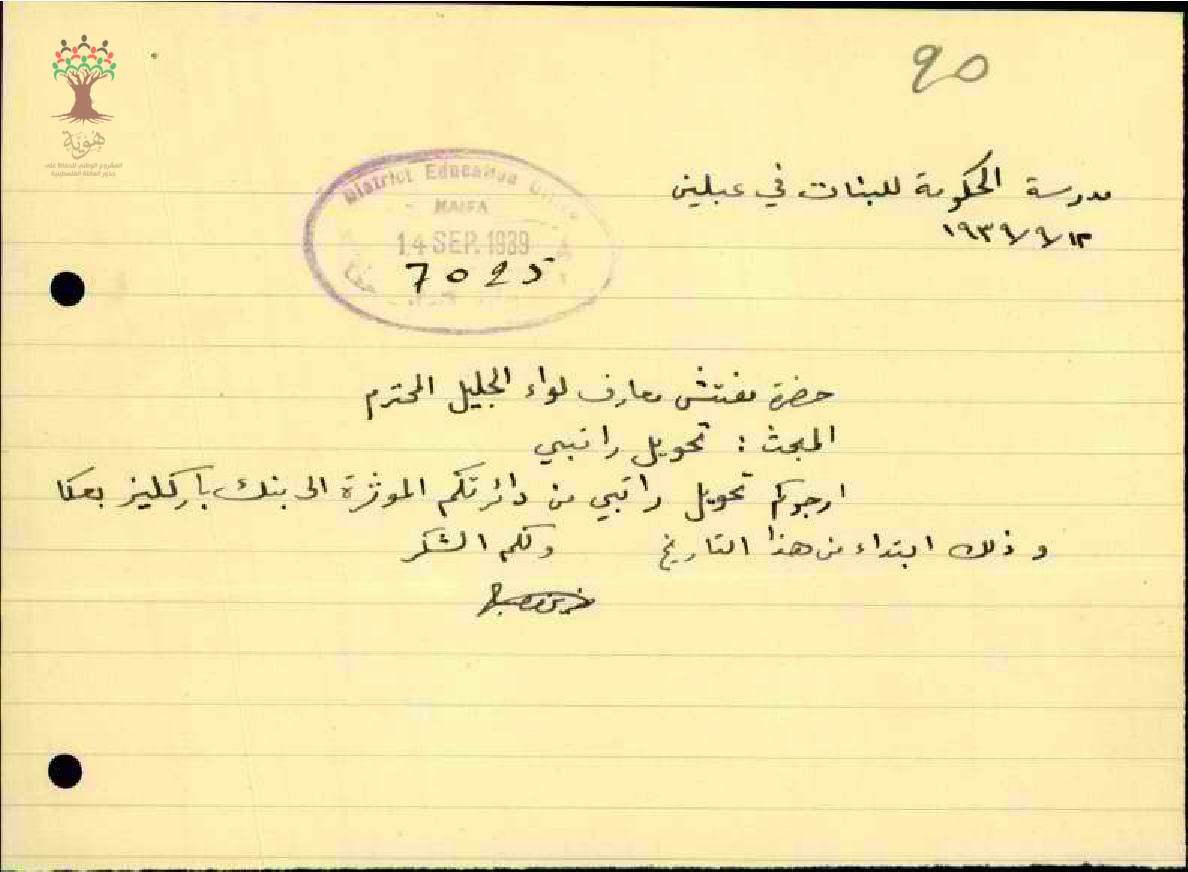 هوية
المشروع الوطني للحفاظ على
جذور العائلة الفلسطينية
90
District Education Office
HAIFA
14 SEP. 1939
7025
حيفا
مدرسة الحكومة للبنات في عبلين
١٩٣٩/٩/١٢
حضرة مفتش معارف لواء الجليل المحترم
المبحث : تحويل راتبي
ارجوكم تحويل راتبي من دائرتكم الموقرة الى بنك باركليز بعكا
و ذلك ابتداء من هذا التاريخ ولكم الشكر